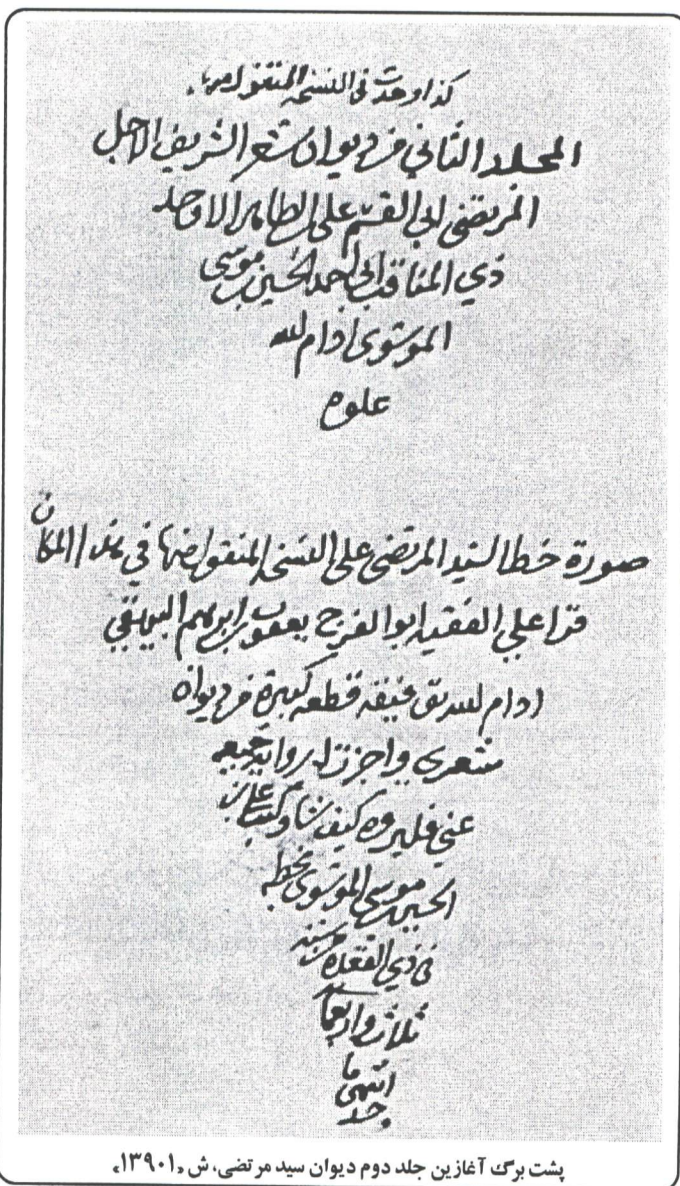 كذا وجدت فى النسخة المنقول منها
المجلد الثاني من ديوان شعر الشريف الاجل
المرتضى ابى القسم على الطاهر الاوحد
ذي المناقب ابى احمد الحسين بن موسى
الموسوى ادام الله
علوه
صورة خط السيد المرتضى على النسخة المنقول منها في هذا المكان
قرا علي الفقيه ابو الفرج يعقوب بن ابرهيم البيهقي
ادام الله توفيقه قطعة كبيرة من ديوان
شعرى واجزت له رواية جميعه
عني فليروه كيف شاء وكتب على بن
الحسين بن موسى الموسوى بخطه
فى ذي القعده من سنه
ثلاث واربعمائة
انتهى ما
وجد
پشت برگ آغازین جلد دوم دیوان سید مرتضی، ش «۱۳۹۰۱»